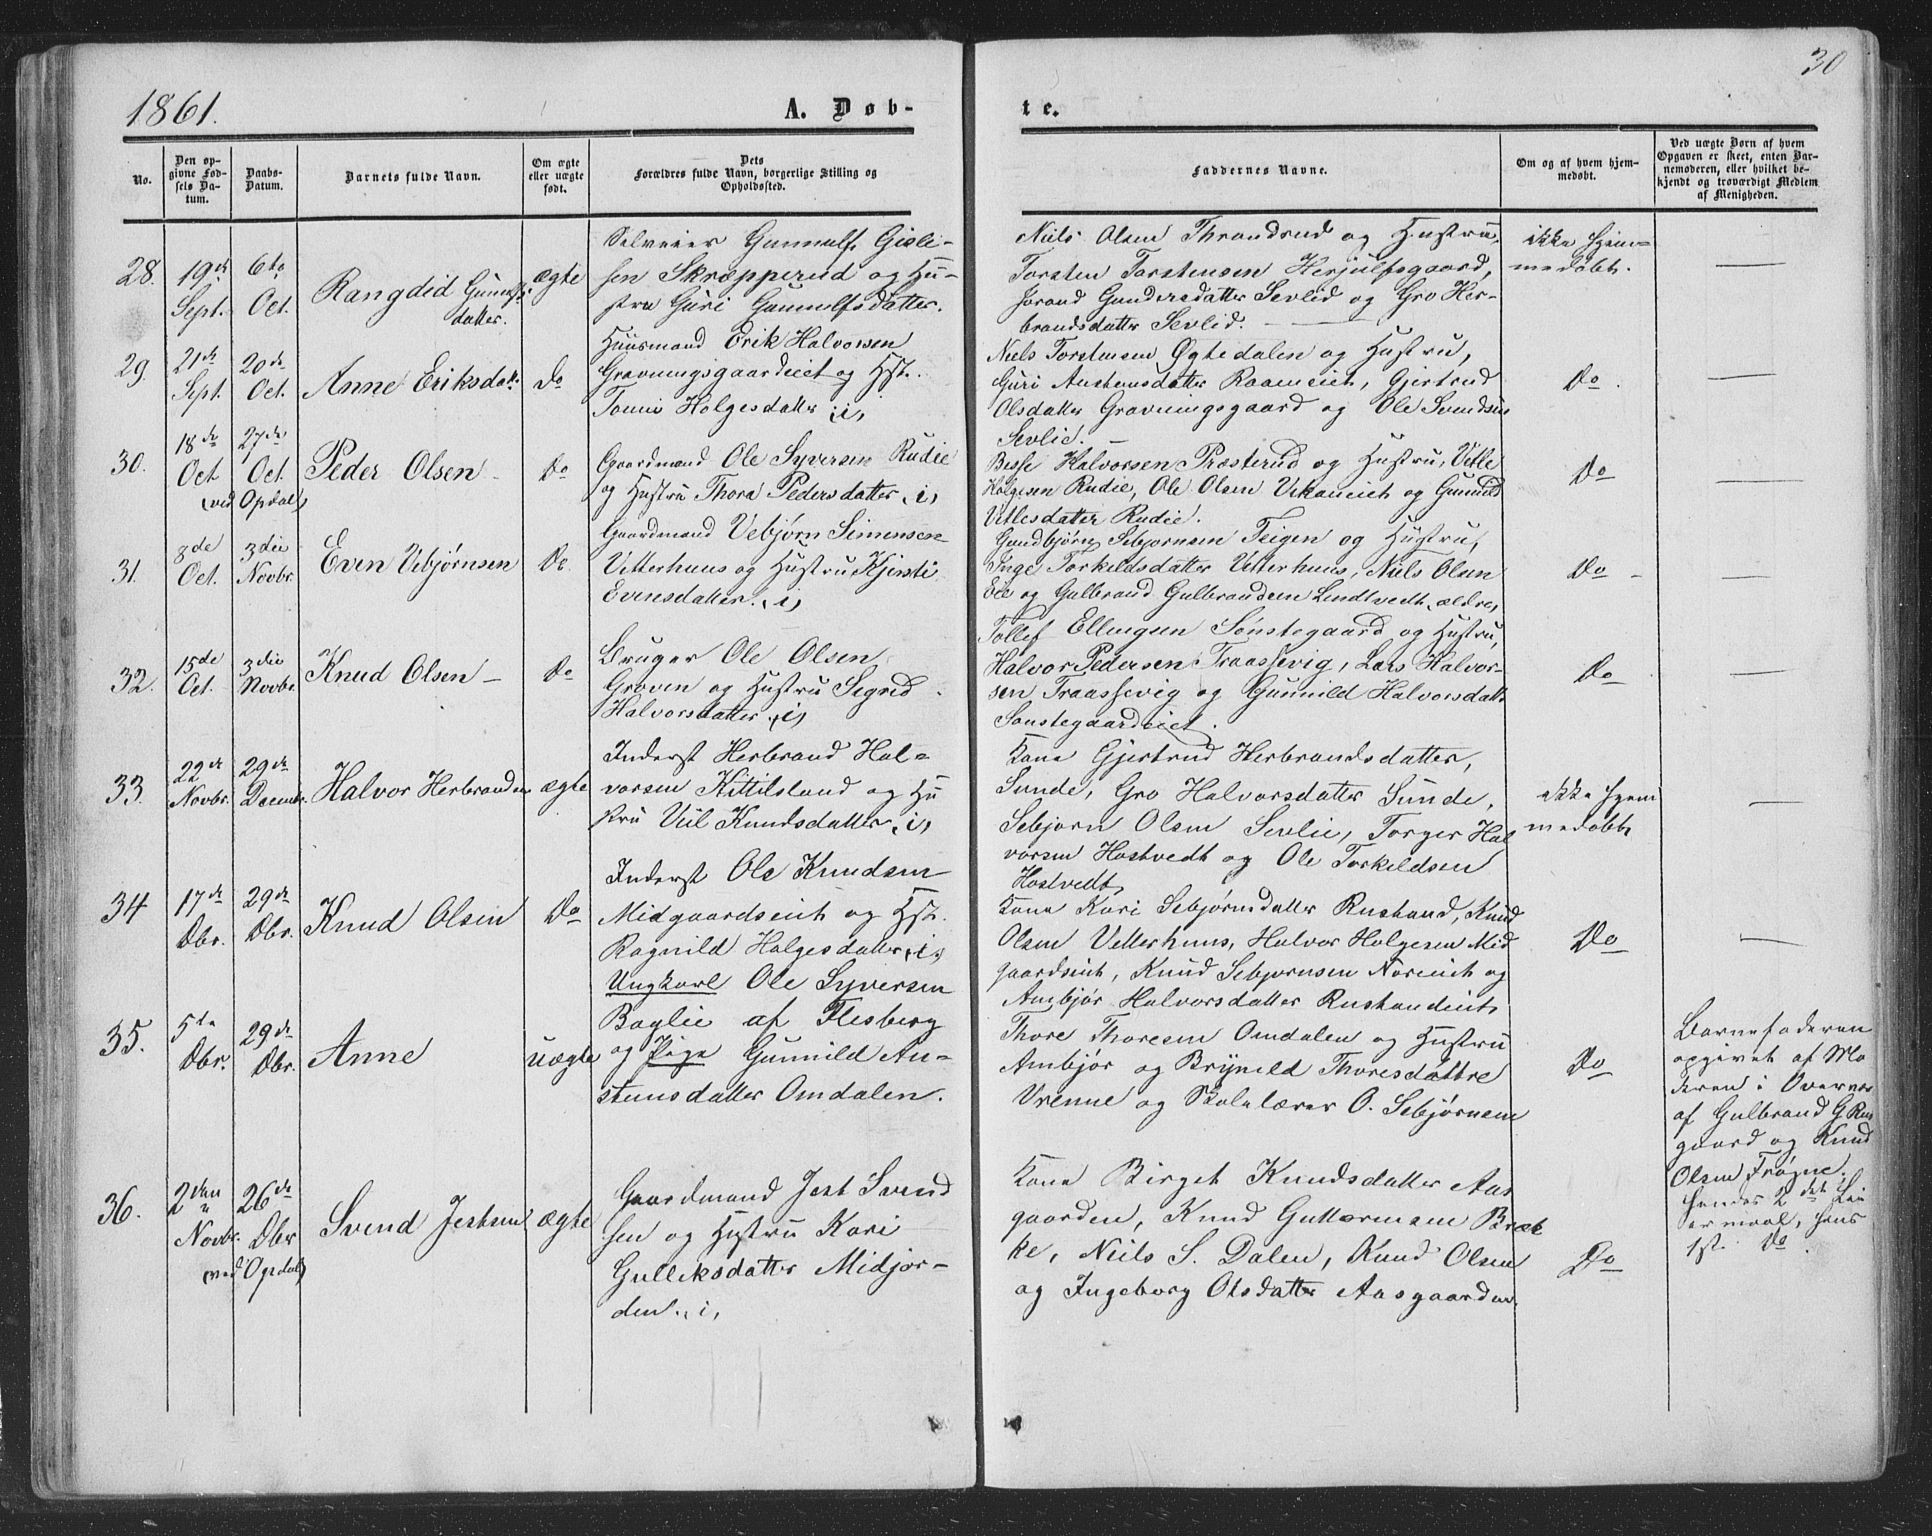 30
1861.
A. Døb-
te.
No.
Den op-
givne Fød-
sels Da-
tum.
Daabs-
Datum.
Barnets fulde Navn.
Om ægte
eller uægte
født.
Dets
Forældres fulde Navn, borgerlige Stilling og
Opholdssted.
Faddernes Navne.
Om og af hvem hjem-
medøbt.
Ved uægte Børn af hvem
Opgaven er skeet, enten Bar-
nemoderen, eller hvilket be-
kjendt og troværdigt Medlem
af Menigheden.
28.
19de
Sept.
6te
Oct.
Rangdid Gunulfs-
datter.
ægte
Selveier Gunnulf Gisle-
sen Skræpperud og Hu-
stru Guri Gunnulfsdatter.
Niels Olsen Throndrud og Hustru,
Torsten Torstensen Herjulfsgaard,
Jorand Gundersdatter Sevlid og Gro Her-
brandsdatter Sevlid.
ikke hjem-
medøbt.
29.
21de
Sept.
20de
Oct.
Anne Eriksdatt.
Do
Huusmand Erik Halvorsen
Gravningsgaardeiet og Hst.
Tonni Holgesdatter, i,
Niels Torstensen Øgtedalen og Hustru,
Guri Austensdatter Raaeneiet, Gjertrud
Olsdatter Gravningsgaard og Ole Svendsen
Sevlie.
Do
30.
18de
Oct
27de
Oct.
(ved Opdal)
Peder Olsen
Do
Gaardmand Ole Syversen Rudie
og Hustru Thora Pedersdatter, i,
Besse Halvorsen Præsterud og Hustru, Vetle
Holgesen Rudie, Ole Olsen Vikaneiet og Gunild
Vetlesdatter Rudie.
Do
31.
8de
Oct.
3die
Novbr.
Even Vebjørnsen
Do.
Gaardmand Vebjørn Simensen
Vetterhuus og Hustru Kjersti
Evensdatter. i,
Gundbjørn Sebjornsen Teigen og Hustru,
Inge Torkildsdatter Vetterhuus, Niels Olsen
Eie og Gulbrand Gulbrandsen Lindtvedt, ældre,
Do
32.
15de
Oct.
3die
Novbr.
Knud Olsen
Do
Bruger Ole Olsen
Groven og Hustru Segrid
Halvorsdatter, i,
Tollef Ellingsen Sønstegaard og Hustru,
Halvor Pedersen Traassevig, Lars Halvor-
sen Traassevig og Gunnild Halvorsdatt.
Sønstegaardeiet.
Do
33.
22de
Novbr.
29de
Decembr.
Halvor Herbrandsen
ægte
Inderst Herbrand Hal-
vorsen Kittilsland og Hu
stru Viil Knudsdatter, i,
Kone Gjertrud Herbrandsdatter,
Sunde, Gro Halvorsdatter Sunde,
Sebjorn Olsen Sevlie, Torger Hal
vorsen Hostvedt og Ole Torkildsen
Hostvedt,
ikke hjem
medøbt
34
17de
Dbr.
29de
Dbr.
Knud Olsen
Do
Inderst Ole Knudsen
Midgaardseiet og Hst.
Ragnild Holgesdatter, i,
Kone Kari Sebjørnsdatter Rustand, Knud
Olsen Vetterhuus, Halvor Holgesen Mid
gaardseiet, Knud Sebjornsen Noreeiet og
Ambjør Halvorsdatter Rustandeiet,
Do
35.
5te
Dbr.
29de
Dbr.
Anne
uægte
Ungkarl Ole Syversen
Baglie af Flesberg
og Pige Gunnild Au-
stensdatter Omdalen.
Thore Thoresen Omdalen og Hustru
Ambjør og Brynild Thoresdattre
Vrenne og Skolelærer O. Sebjørnsen
Do
Barnefaderen
opgivet af Mo
deren i Overvær
af Gulbrand G Ruu
gaard og Knud
Olsen Frøgne.
hendes 2det Lei
ermaal, hans
1st. Do.
36.
2den
Novbr.
26de
Dbr
(ved Opdal)
Svend Jestsen
ægte
Gaardmand Jest Svend
sen og Hustru Kari
Gulleksdatter Midjor-
den., i,
Kone Birget Knudsdatter Aas
gaarden, Knud Guttormsen Bræk
ke, Niels S. Dalen, Knud Olsen
og Ingeborg Olsdatter Aasgaarden.
Do